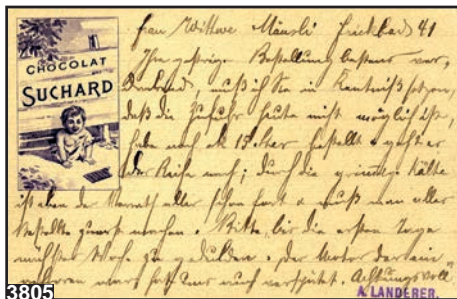 CHOCOLAT
SUCHARD
Frau Wittwe Mäusli Frickbad 41
Ihre gestrige Bestellung bestens
muß ich Sie in Kenntniß setzen,
daß die Zufuhr heute nicht möglich ist,
habe noch bestellt & geht es
der Reihe nach; durch die Kälte
ist eben der Vorrath aller schon fort & muß man alles
bestellte zuerst machen. Bitte bis die ersten Tage
nächster Woche zu gedulden. Der Motor
war hat uns auch verspätet. Achtungsvoll
A. LANDERER.
3805